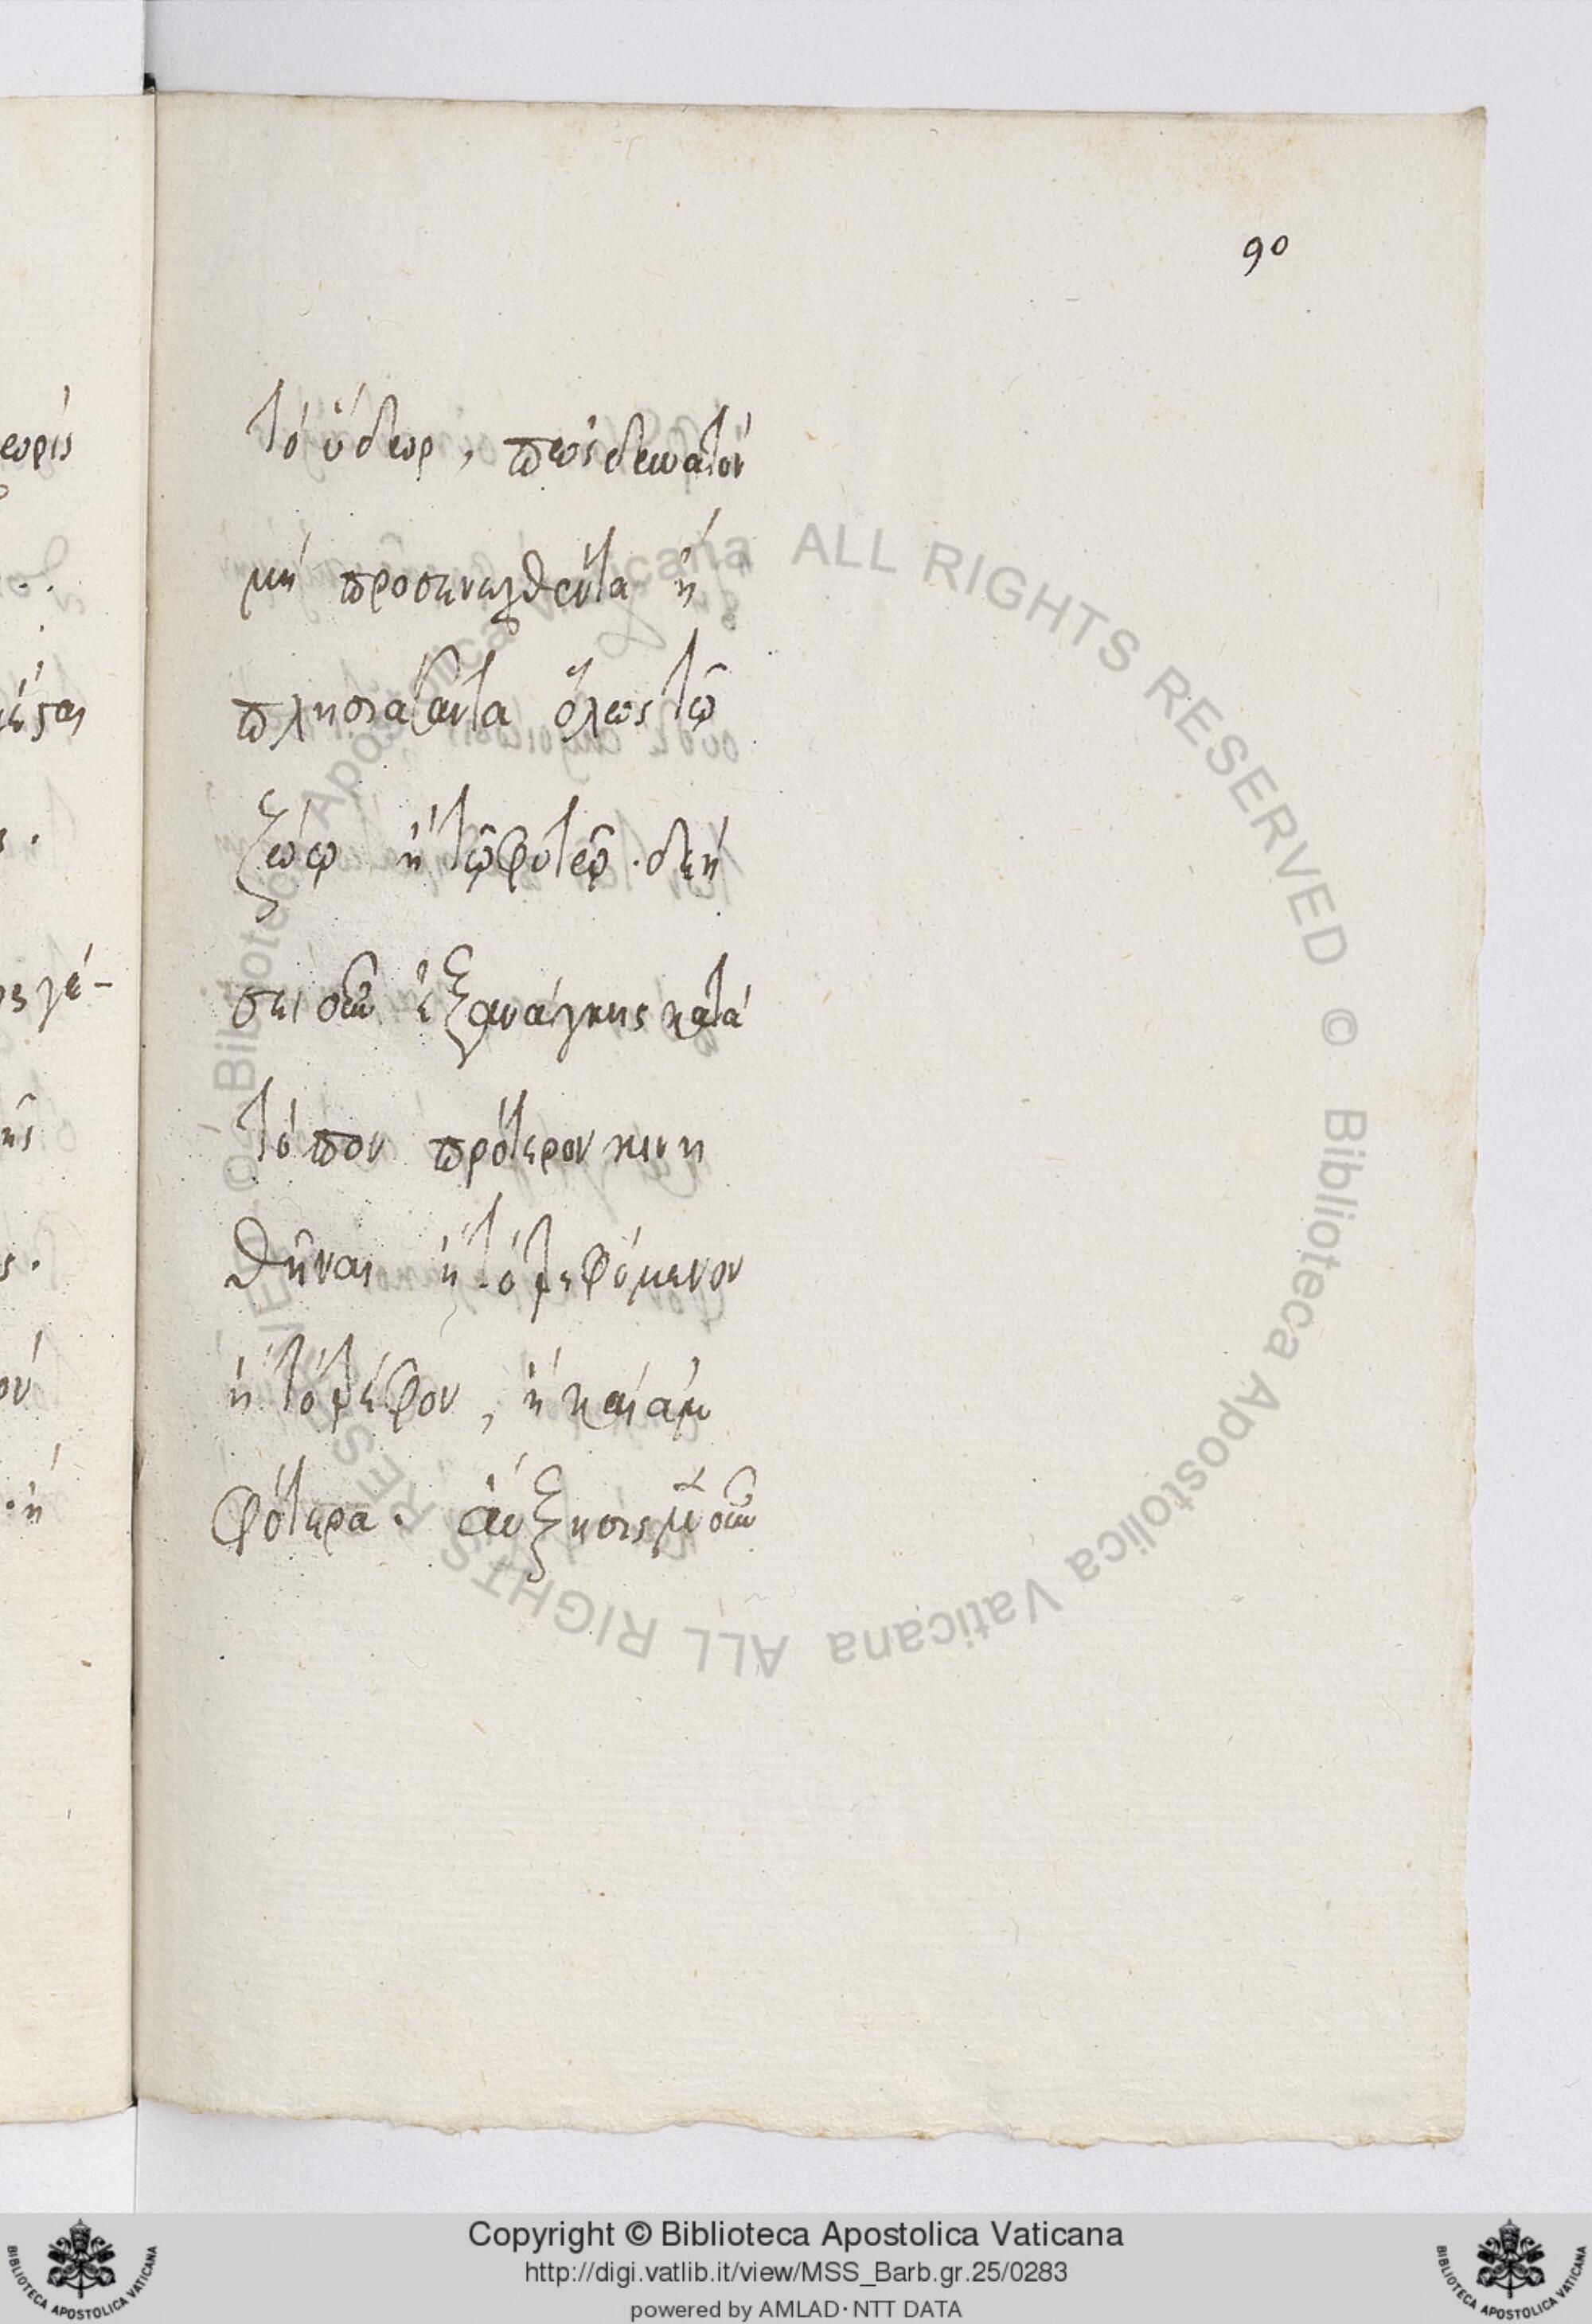 90
τὸ ὕδωρ, πῶς δυνατὸν
μὴ προσενεχθέντα ἢ
πλησιάσαντα ὅλως τῷ
ζώῳ ἢ τῷ φυτῷ. δεή
σει οὖν ἐξανάγκης κατὰ
τόπον πρότερον κινη
θῆναι ἢ τὸ τρεφόμενον
ἢ τὸ τρέφον, ἢ καὶ ἀμ
φότερα. αὔξησις μὲν οὖν
ALL RIGHTS RESERVED © Biblioteca Apostolica Vaticana ALL RIGHTS RESERVED © Biblioteca Apostolica Vaticana
Copyright © Biblioteca Apostolica Vaticana
http://digi.vatlib.it/view/MSS_Barb.gr.25/0283
powered by AMLAD · NTT DATA
BIBLIOTECA APOSTOLICA VATICANA
BIBLIOTECA APOSTOLICA VATICANA